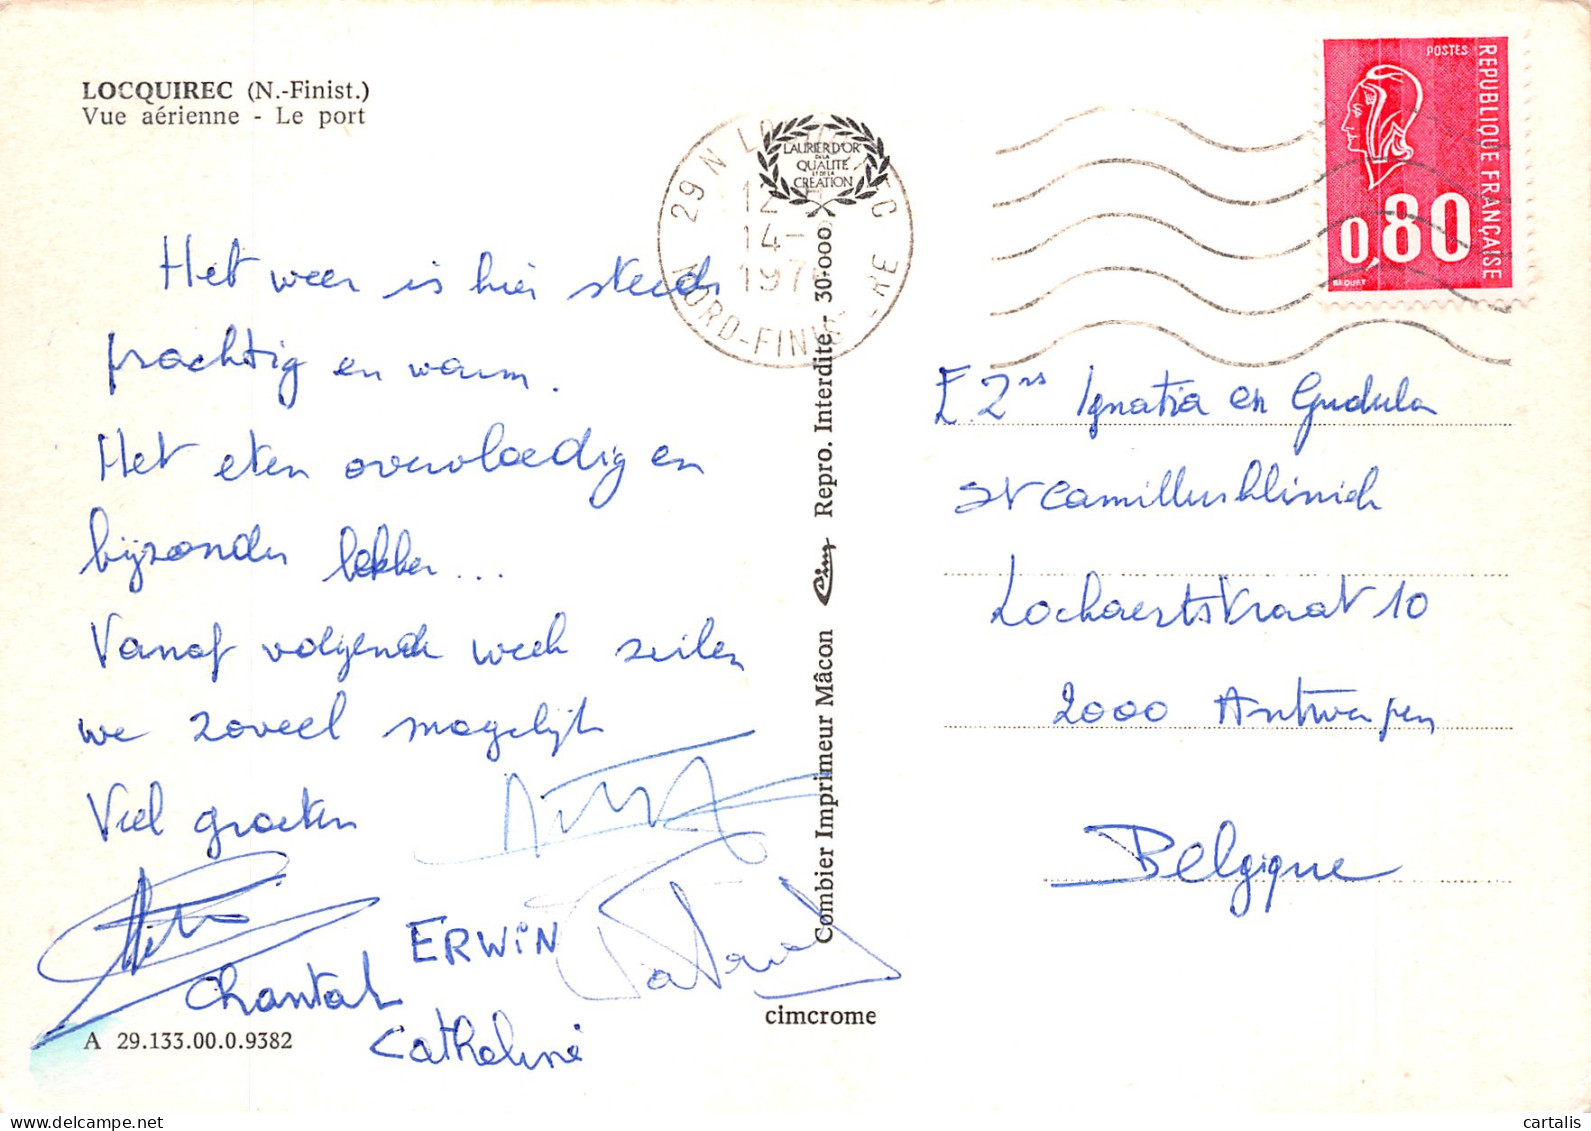 LOCQUIREC (N.-Finist.)
Vue aérienne - Le port
Het weer is hier steeds
prachtig en warm.
Het eten overvloedig en
bijzonder lekker...
Vanaf volgende week zeilen
we zoveel mogelijk
Veel groeten
Chantal
ERWIN
A 29.133.00.0.9382
cimcrome
Combier Imprimeur Mâcon Cim Repro. Interdite - 30-000
LAURIER D'OR
DE LA
QUALITÉ
ET DE LA
CRÉATION
29 N
12
14-
197
NORD-FINIS
POSTES
REPUBLIQUE FRANÇAISE
0,80
BEQUET
E.Zrs Ignatia en Gudula
St Camilluskliniek
Lockaertstraat 10
2000 Antwerpen
Belgique
www.cartalis.com
cartalis